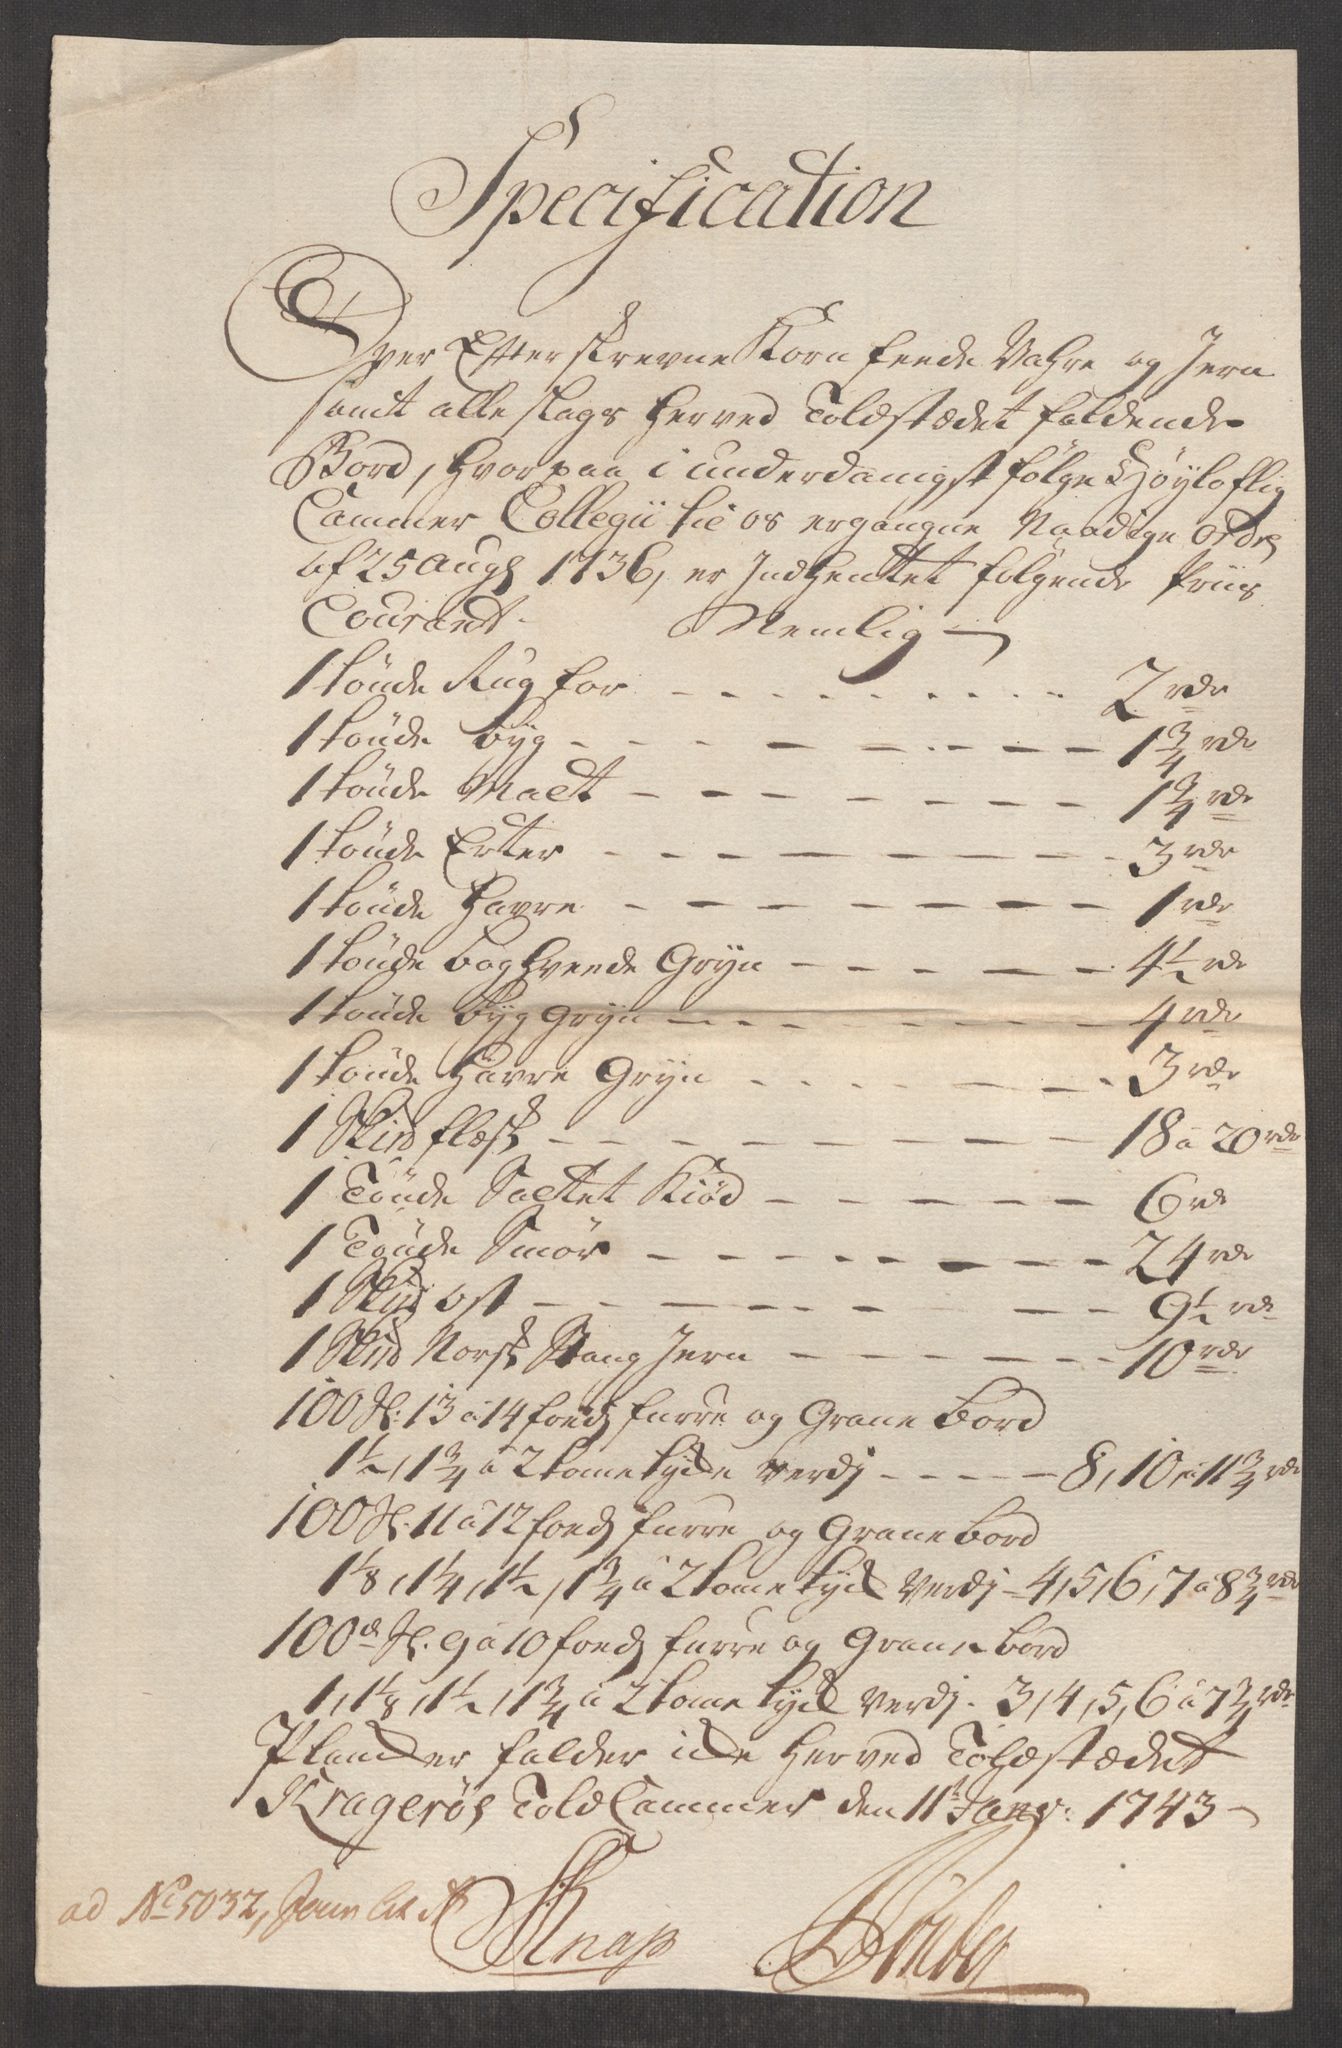 Specification
Over Efterskrevne Korn Feede Vahre og Jern
samt alle slags Herved Toldstædet faldende
Bord, hvorpaa i underdanigst følge Høyloflig
Cammer Collegii til os ergangne Naadige ordre
af 25 Augs 1736, er Indhentet følgende Priis
Courant. Nemlig
1 tönde Rug for 2 rdr
1 tönde byg 1 3/4 rdr
1 tönde Malt 1 3/4 rdr
1 tönde Erter 3 rdr
1 tönde Havre 1 rdr
1 tönde boghvede Gryn 4 1/2 rdr
1 tönde byg Gryn 4 rdr
1 tönde Havre Gryn 3 rdr
1 Sk℔ flæsk 18 a 20 rdr
1 Tönde Saltet Kiød 6 rdr
1 Tönde Smör 24 rdr
1 Sk℔ ost 9 1/2 rdr
1 Sk℔ Norsk Stang Jern 10 rdr
100 st: 13 a 14 foeds furre og Grane bord
1 1/2, 1 3/4 a 2 tome tycke verdj 8, 10, a 11 3/4 rdr
100 st. 11 a 12 foeds furre og Grane bord
1 1/8, 1 1/4, 1 1/2, 1 3/4 a 2 tome tyck verdj 4, 5, 6, 7 a 8 3/4 rdr
100de st. 9 a 10 foeds furre og Grane bord
1, 1 1/8, 1 1/2, 1 3/4 a 2 tome tyck verdj. 3, 4, 5, 6 a 7 3/4 rdr
Plancker falder icke Herved Toldstædet
Kragerös Told Cammer den 11t Janv: 1743
ad No 5032, Journ Lit A
Knap